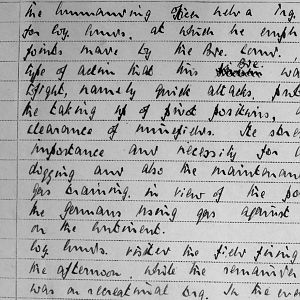 the Commanding Offr held a
for Coy. Comds. at which he
points made by the Bde. Comd.,
type of action that this Bde. was
fight, namely quick attacks
the taking up of pivot positions,
clearance of minefields. He
importance and necessity for
digging and also the
gas training, in view of the
the Germans using gas against
on the Continent.
Coy. Comds. visited the field firing
the afternoon while the remainder
was on recreational trg. In the